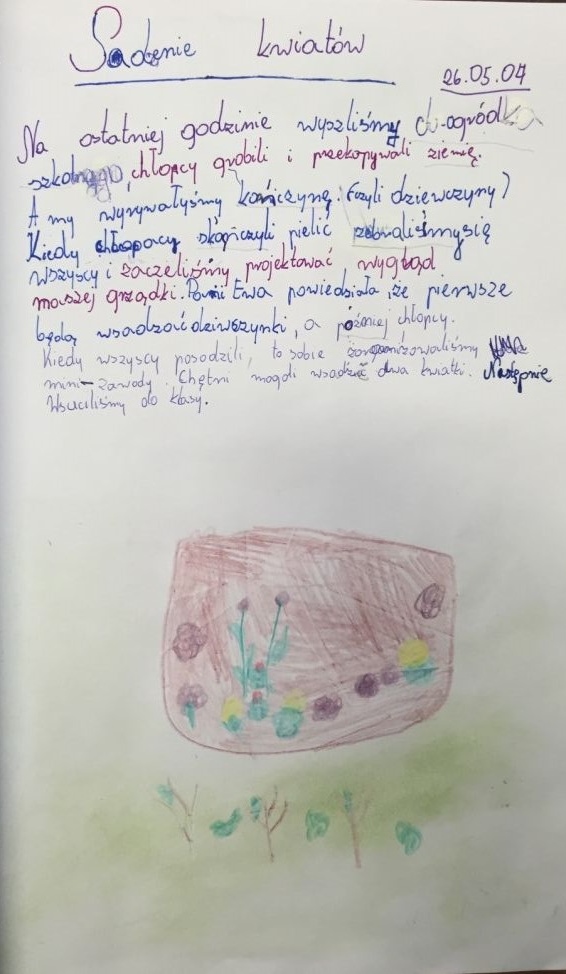 Sadzenie kwiatów
26.05.04
Na ostatniej godzinie wyszliśmy do ogródka
szkolnego, chłopcy grobili i przekopywali ziemię.
A my wyrywałyśmy kończynę. (czyli dziewczyny)
Kiedy chłopacy skończyli pielić zebraliśmysię
wszyscy i zaczeliśmy projektować wygląd
naszej grządki. Pani Ewa powiedziała, że pierwsze
będą wsadzać dziewszynki, a poźniej chłopcy.
Kiedy wszyscy posadzili, to sobie zorganizowaliśmy
mini-zawody. Chętni mogli wsadzić dwa kwiatki. Następnie
Wruciliśmy do klasy.